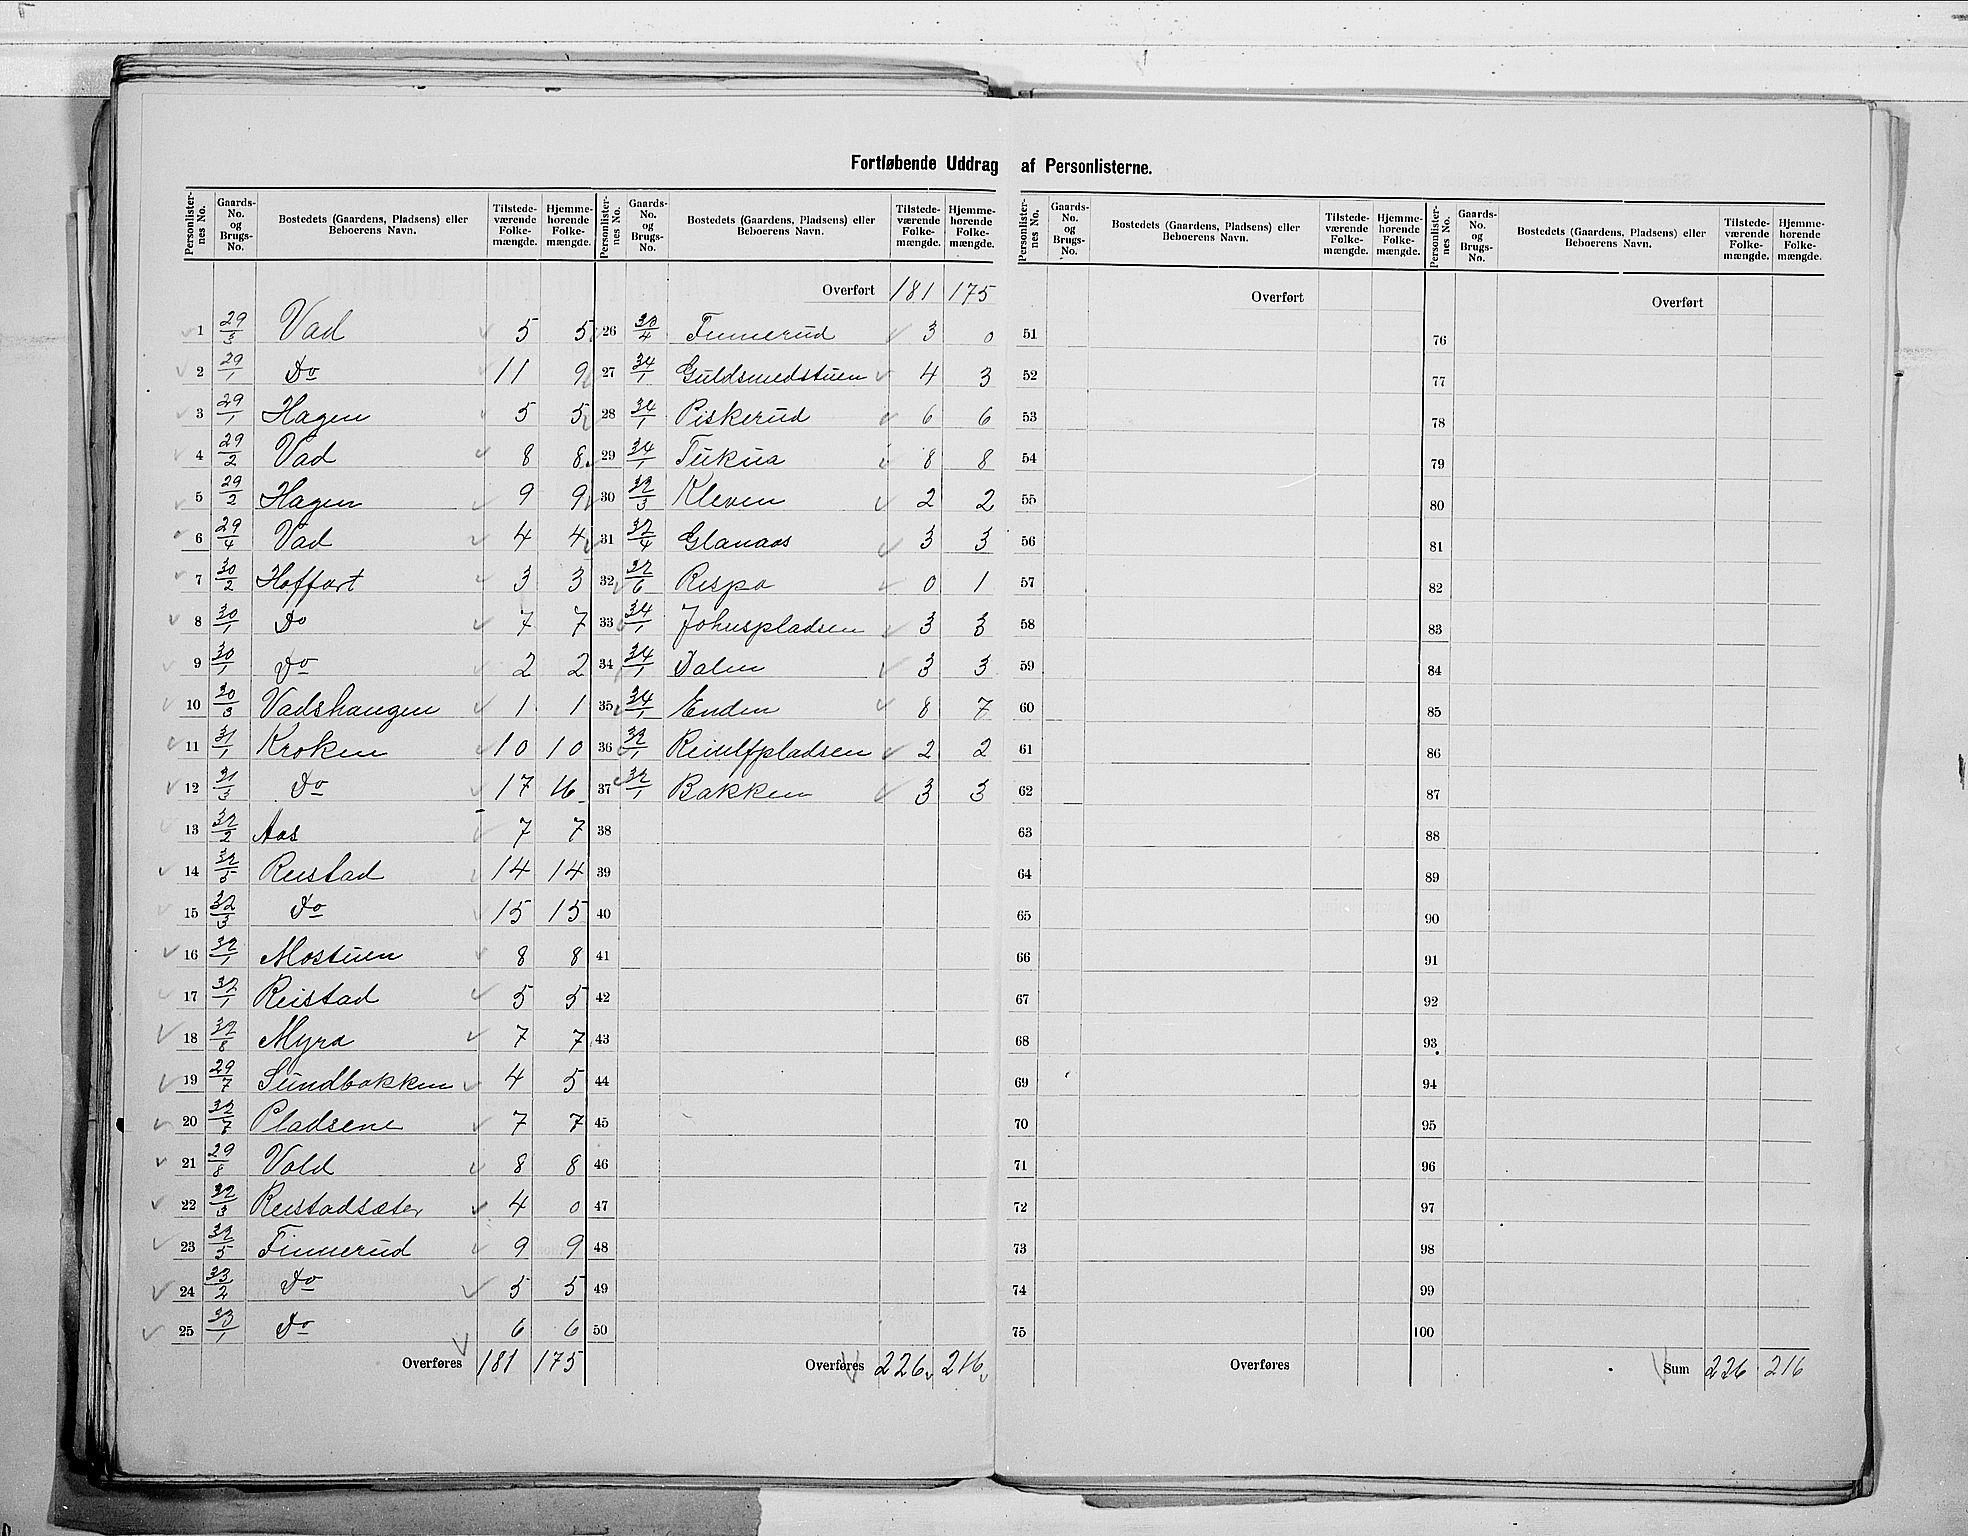 Fortløbende Uddrag af Personlisterne.
Personlister-nes No. | Gaards-No. og Brugs-No. | Bostedets (Gaardens, Pladsens) eller Beboerens Navn. | Tilstede-værende Folke-mængde. | Hjemme-hørende Folke-mængde.
1 29/3 Vad 5 5
2 29/1 Do 11 9
3 29/1 Hagen 5 5
4 29/2 Vad 8 8
5 29/2 Hagen 9 9
6 29/4 Vad 4 4
7 30/2 Hoffart 3 3
8 30/1 Do 7 7
9 30/1 Do 2 2
10 30/3 Vadshaugen 1 1
11 31/1 Kroken 10 10
12 31/3 Do 17 16
13 32/2 Aas 7 7
14 32/5 Reistad 14 14
15 32/3 Do 15 15
16 32/1 Mostuen 8 8
17 32/1 Reistad 5 5
18 32/8 Myra 7 7
19 29/7 Sundbakken 4 5
20 32/7 Pladsene 7 7
21 29/8 Vold 8 8
22 32/3 Reistadsæter 4 0
23 32/5 Finnerud 9 9
24 33/2 Do 5 5
25 33/1 Do 6 6
Overføres 181 175
Personlister-nes No. | Gaards-No. og Brugs-No. | Bostedets (Gaardens, Pladsens) eller Beboerens Navn. | Tilstede-værende Folke-mængde. | Hjemme-hørende Folke-mængde.
Overført 181 175
26 33/4 Finnerud 3 0
27 34/1 Guldsmedstuen 4 3
28 34/1 Piskerud 6 6
29 34/1 Tukua 8 8
30 32/3 Kleven 2 2
31 32/4 Glanaas 3 3
32 32/6 Rispa 0 1
33 34/1 Johnspladsen 3 3
34 34/1 Dalen 3 3
35 34/1 Enden 8 7
36 32/1 Reiulfpladsen 2 2
37 32/1 Bakken 3 3
38
39
40
41
42
43
44
45
46
47
48
49
50
Overføres 226 216
Personlister-nes No. | Gaards-No. og Brugs-No. | Bostedets (Gaardens, Pladsens) eller Beboerens Navn. | Tilstede-værende Folke-mængde. | Hjemme-hørende Folke-mængde.
Overført
51
52
53
54
55
56
57
58
59
60
61
62
63
64
65
66
67
68
69
70
71
72
73
74
75
Overføres
Personlister-nes No. | Gaards-No. og Brugs-No. | Bostedets (Gaardens, Pladsens) eller Beboerens Navn. | Tilstede-værende Folke-mængde. | Hjemme-hørende Folke-mængde.
Overført
76
77
78
79
80
81
82
83
84
85
86
87
88
89
90
91
92
93
94
95
96
97
98
99
100
Sum 226 216